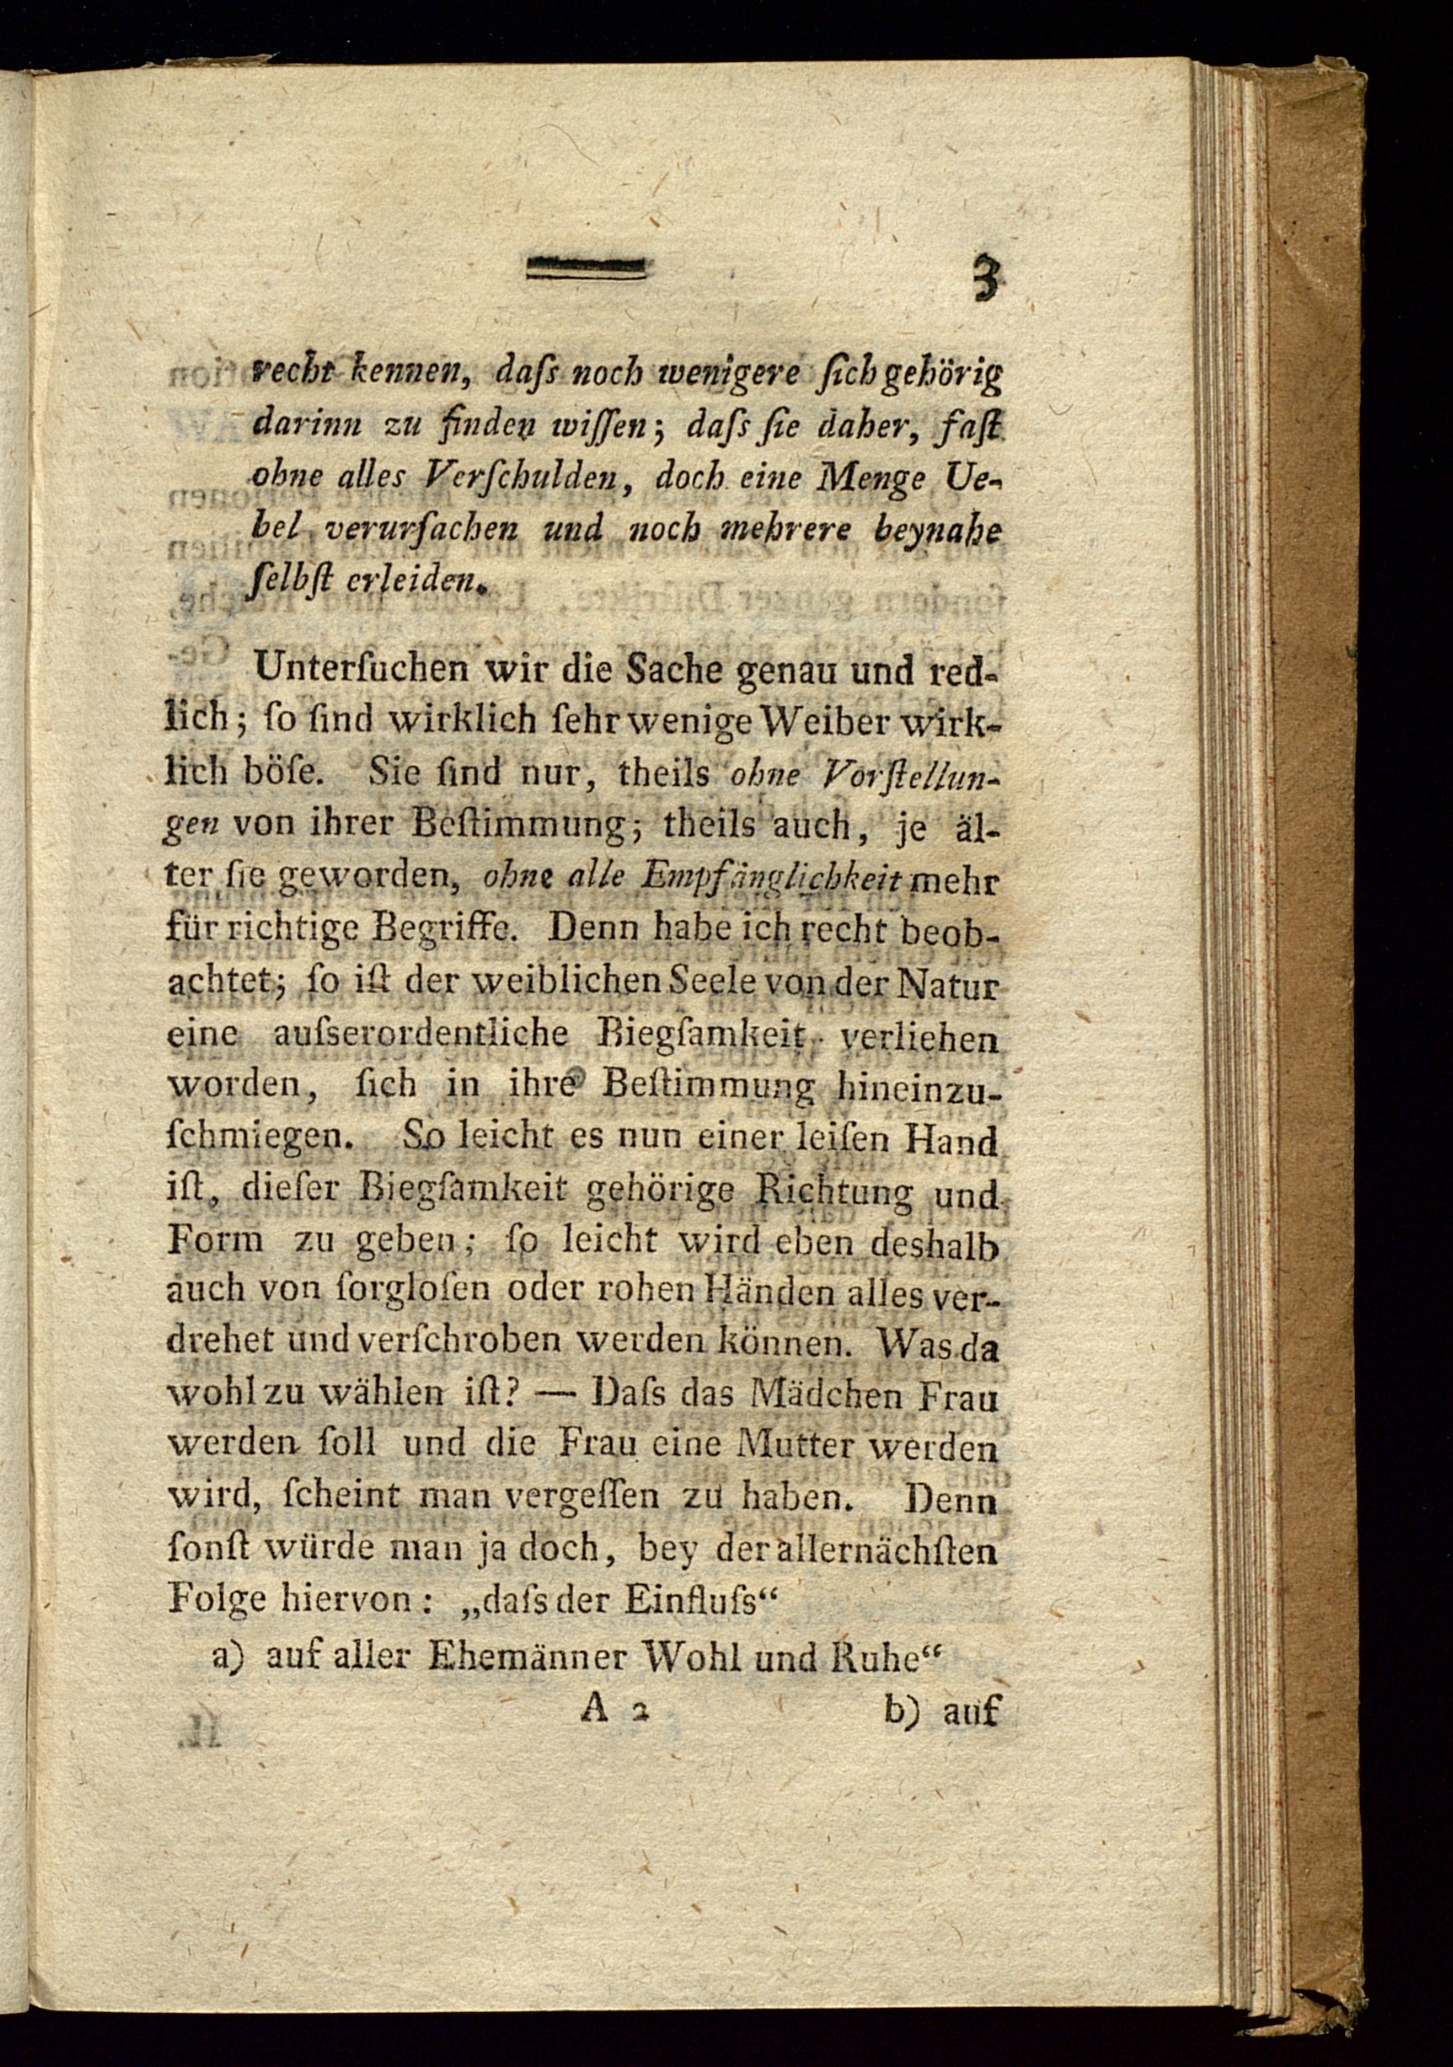 3
recht kennen, daſs noch wenigere ſich gehörig
darinn zu finden wiſſen; daſs ſie daher, faſt
ohne alles Verſchulden, doch eine Menge Ue-
bel verurſachen und noch mehrere beynahe
ſelbſt erleiden.
Unterſuchen wir die Sache genau und red-
lich; ſo ſind wirklich ſehr wenige Weiber wirk-
lich böſe. Sie ſind nur, theils ohne Vorſtellun-
gen von ihrer Beſtimmung; theils auch, je äl-
ter ſie geworden, ohne alle Empfänglichkeit mehr
für richtige Begriffe. Denn habe ich recht beob-
achtet; ſo iſt der weiblichen Seele von der Natur
eine auſserordentliche Biegſamkeit verliehen
worden, ſich in ihre Beſtimmung hineinzu-
ſchmiegen. So leicht es nun einer leiſen Hand
iſt, dieſer Biegſamkeit gehörige Richtung und
Form zu geben; ſo leicht wird eben deshalb
auch von ſorgloſen oder rohen Händen alles ver-
drehet und verſchroben werden können. Was da
wohl zu wählen iſt? — Daſs das Mädchen Frau
werden ſoll und die Frau eine Mutter werden
wird, ſcheint man vergeſſen zu haben. Denn
ſonſt würde man ja doch, bey der allernächſten
Folge hiervon: „daſs der Einfluſs“
a) auf aller Ehemänner Wohl und Ruhe“
A 2 b) auf